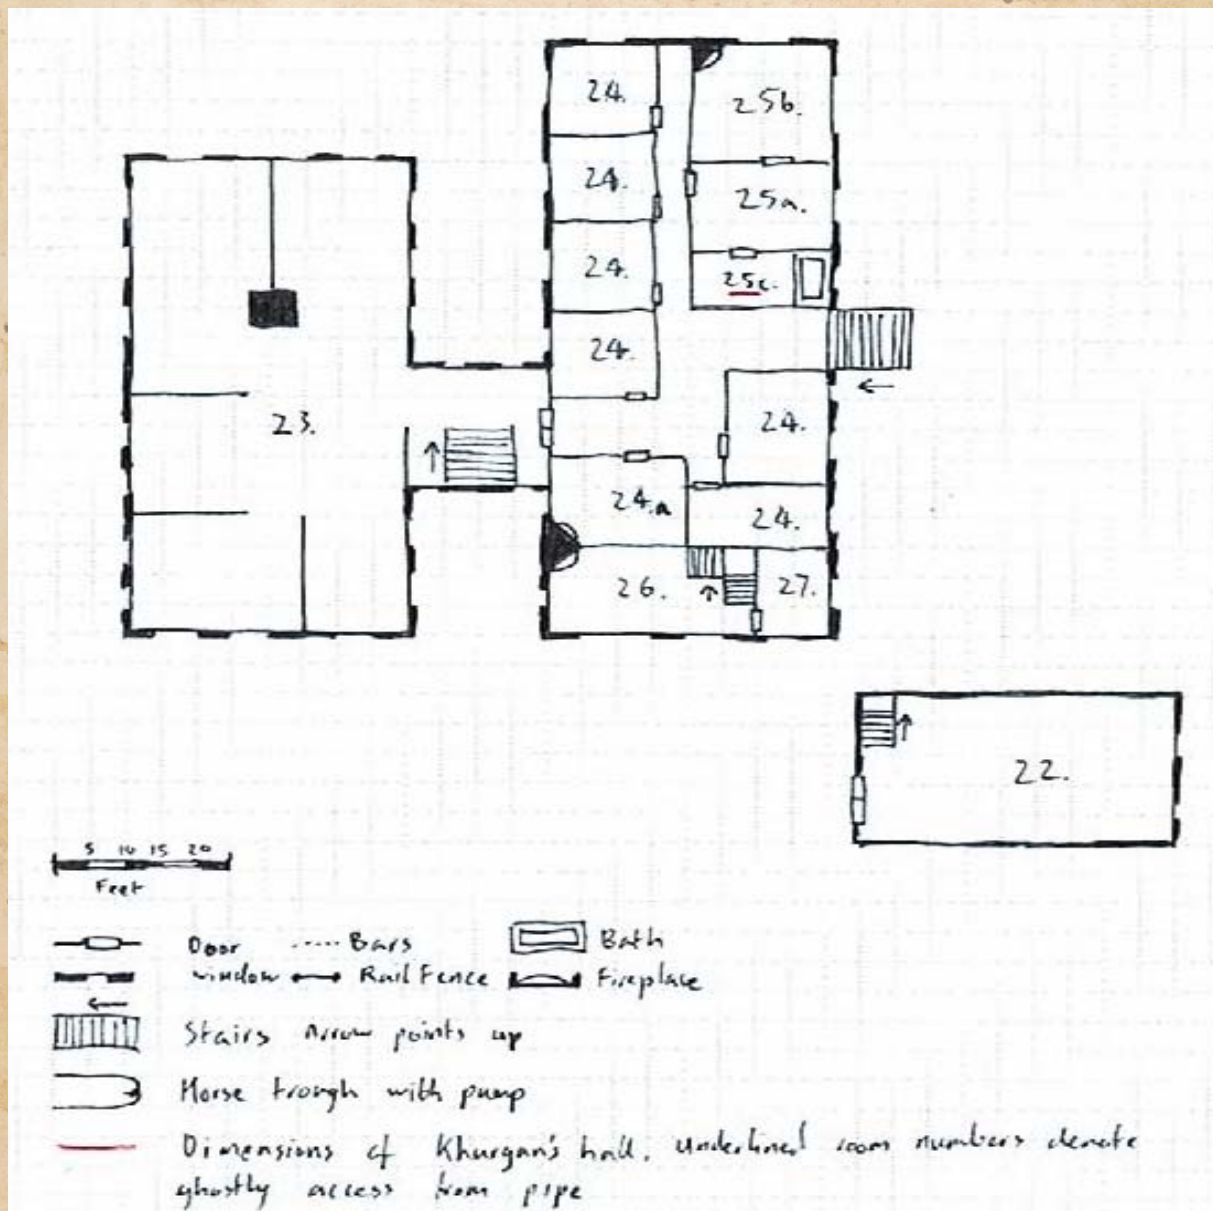 24.
25b.
24.
25a.
24.
25c.
24.
23.
24.
24.a
24.
26.
27.
22.
5 10 15 20
Feet
Door Bars Bath
window Rail Fence Fireplace
Stairs Arrow points up
Horse trough with pump
Dimensions of Khurgan's hall. Underlined room numbers denote
ghostly access from pipe